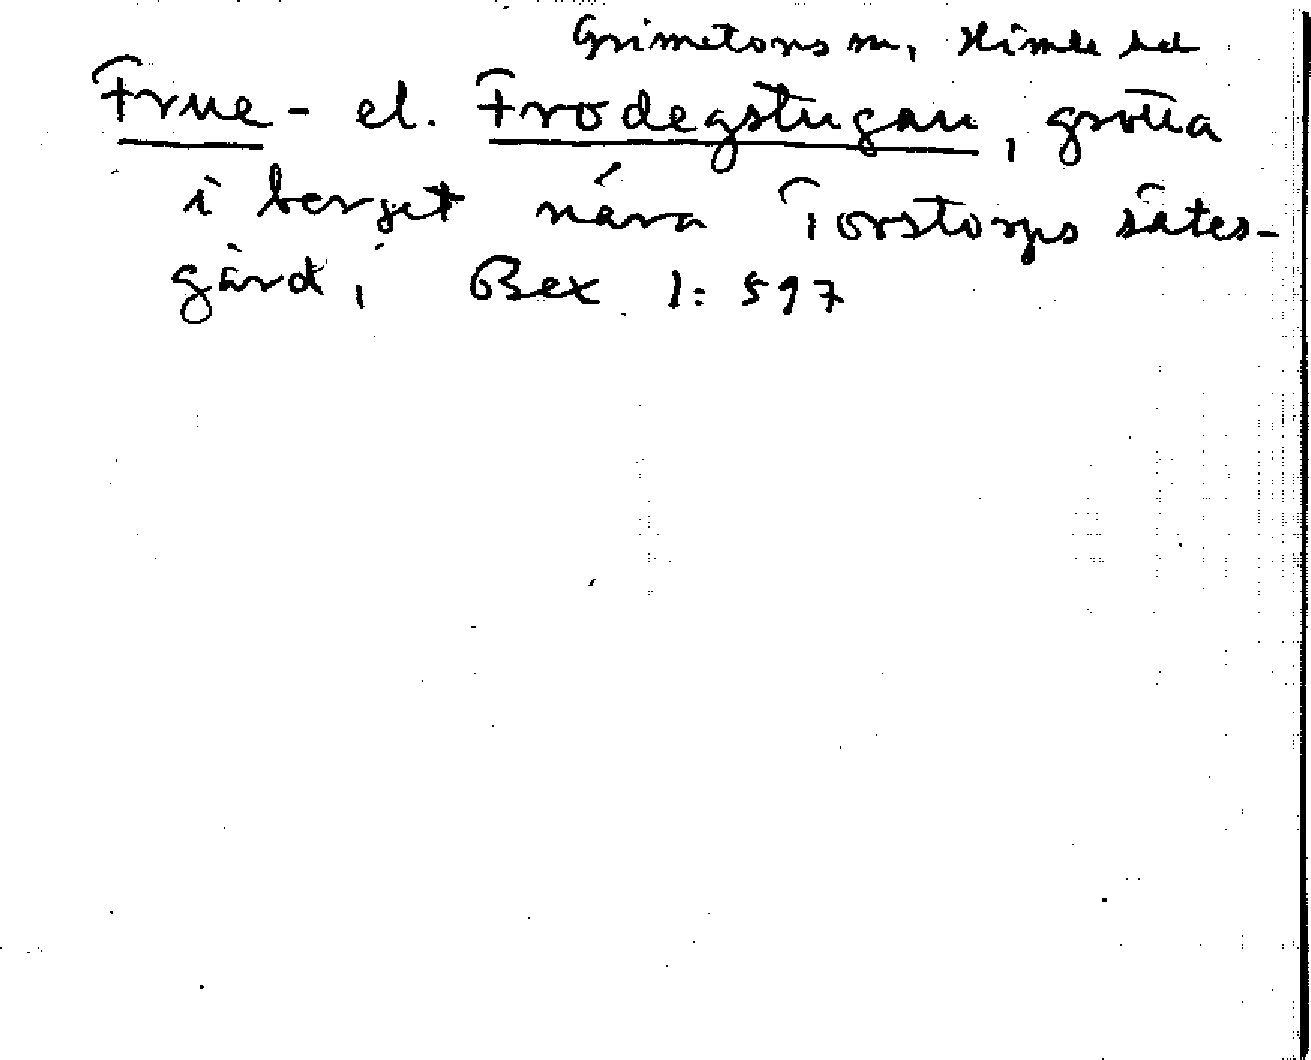 Grimetons sn, Himle hd
Frue- el. Frodegstugan, grotta
i berget nära Torstorps sätes-
gård, Bex 1: 597